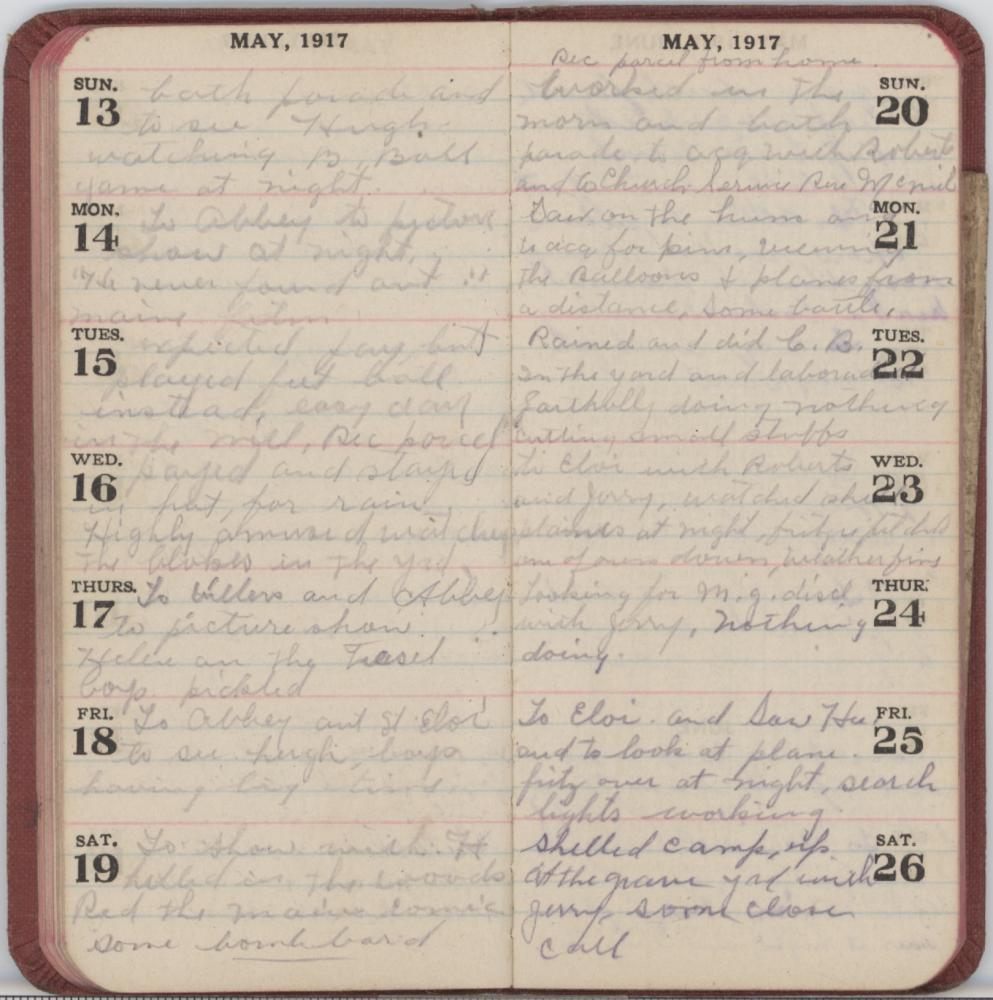 MAY, 1917
SUN.
13
bath parade and
to see Hugh
watching B. Ball
game at night.
MON.
14
To Abbey to picture
show at night,
"He never found out"
film
TUES.
15
expected pay but
played fut ball
instead, easy day
in the mill, Rec parcel
WED.
16
payed and stayed
in hut, for rain
Highly amused watching
the blokes in the yrd.
THURS.
17
To Villers and Abbey
to picture show
Helen on the
boys pickled
FRI.
18
To Abbey and St Eloi
to see hugh, boys
having big time
SAT.
19
To show with H
in the woods
Red the comic
some bombbard
MAY, 1917
Rec parcel from home.
SUN.
20
Worked in the
morn and bath
parade to acq with Roberts
and to Church Service
MON.
21
on the hum and
to acq for pins, viewing
the Balloons & planes from
a distance, some battle.
TUES.
22
Rained and did C. B.
in the yard and
doing nothing
cutting small stuffs
WED.
23
to Eloi with Roberts
and Jerry, watched
plaines at night, fritz
one of ours down, weather fine
THUR.
24
Looking for M. g. disel
with Jerry, nothing
doing.
FRI.
25
To Eloi and Saw Hu
and to look at plane.
fritz over at night, search
lights working
SAT.
26
Shelled camp, up
at the grave yrd with
Jerry, some close
call